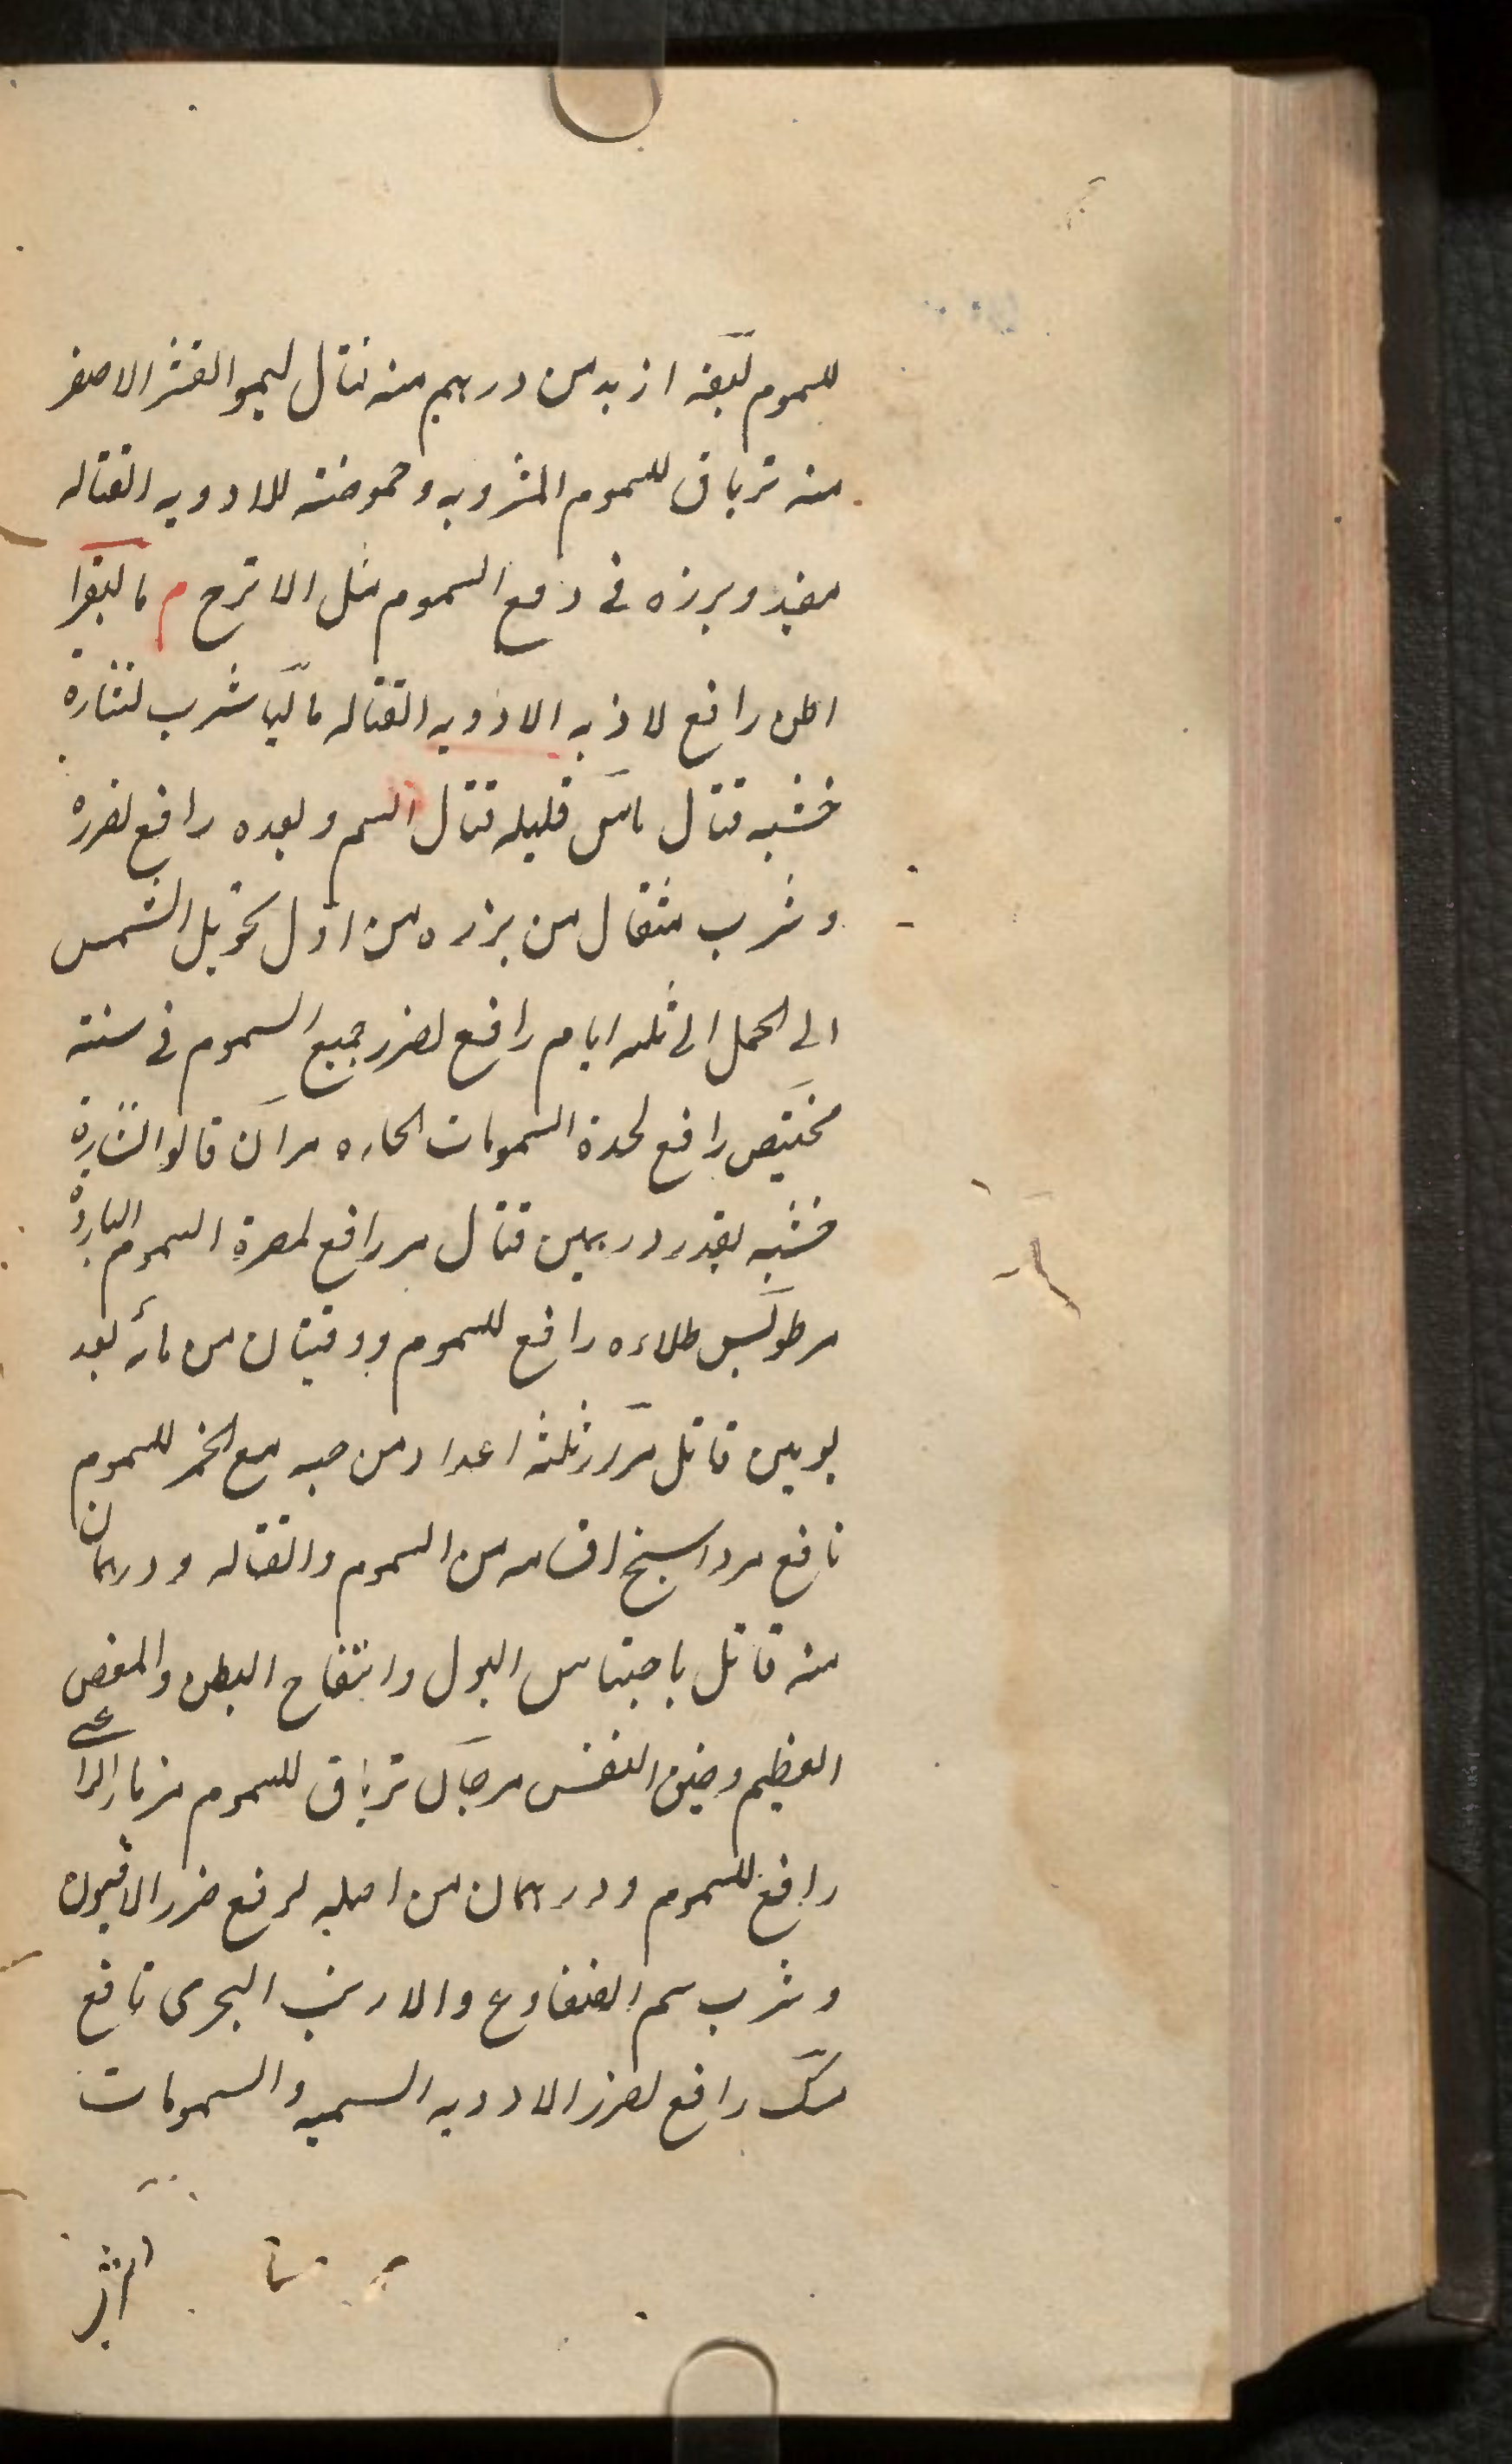 للسموم لبقه ازيد من درهم منه قتال ليمو القشر الاصفر
منه ترياق للسموم المشروبه وحموضته للادويه القتاله
مفيد وبرزه فی دفع السموم مثل الاترج م مالبقرا
اطن رافع لاذيه الادويه القتاله شرب لنثارة
خشبه قتال ماش قليله قتال السم وبعده رافع لضرره
وشرب مثقال من بزره من اول تحويل الشمس
الی الحمل الی ثلثه ايام رافع لضرر جميع السموم فی سنته
رافع لحدة السمومات الحاره مران قالوا لنثارة
خشبه بقدر درهمين قتال مر رافع لمضرة السموم الباردة
طلاءه رافع للسموم ووقيتان من مائه بعد
يومين قاتل ثلثة اعداد من حبه مع الخمر للسموم
نافع مرداسنج اقسامه من السموم والقتاله ودرهمان
منه قاتل باحتباس البول وانتفاح البطن والمغص
العظيم وضيق النفس مرجان ترياق للسموم مزمار الراعی
رافع للسموم ودرهمان من اصله لرفع ضرر الافيون
وشرب سم الضفادع والارنب البحری نافع
مسک رافع لضرر الادويه السميه والسمومات